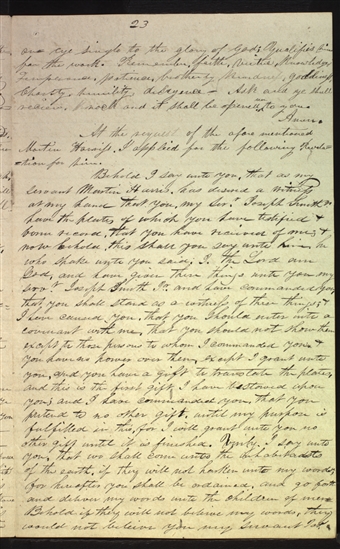 23
one eye single to the glory of God; Qualifies him
for the work. Remember, faith, virtue, Knowledge,
Temperance, patience, brotherly kindness, godliness,
Charity, humility, diligence — Ask and ye shall
receive, knock and it shall be opened to you.
Amen.
At the request of the afore mentioned
Martin Harris, I applied for the following Revela-
tion for him.
Behold I say unto you, that as my
servant Martin Harris, has desired a witness
at my hand that you, my Servt Joseph Smith Jr.
have the plates of which you have testified &
borne record, that you have received of me; &
now behold, this shall you say unto him— he
who spake unto you said; I, the Lord am
God, and have given these things unto you my
servt Joseph Smith Jr. and have commanded you
that you shall stand as a witness of these things; &
I have caused you, that you should enter into a
covenant with me, that you should not show them
except to those persons to whom I commanded you; &
you have no power over them, except I grant unto
you, and you have a gift to translate the plates,
and this is the first gift, I have bestowed upon
you; and I have commanded you, that you
pretend to no other gift, until my purpose is
fulfilled in this, for I will grant unto you no
other gift until it is finished. Verily, I say unto
you, that wo shall come unto the inhabitants
of the earth, if they will not harken unto my words,
for hereafter you shall be ordained, and go forth
and deliver my words unto the children of men
Behold if they will not believe my words, they
would not believe you, my Servant